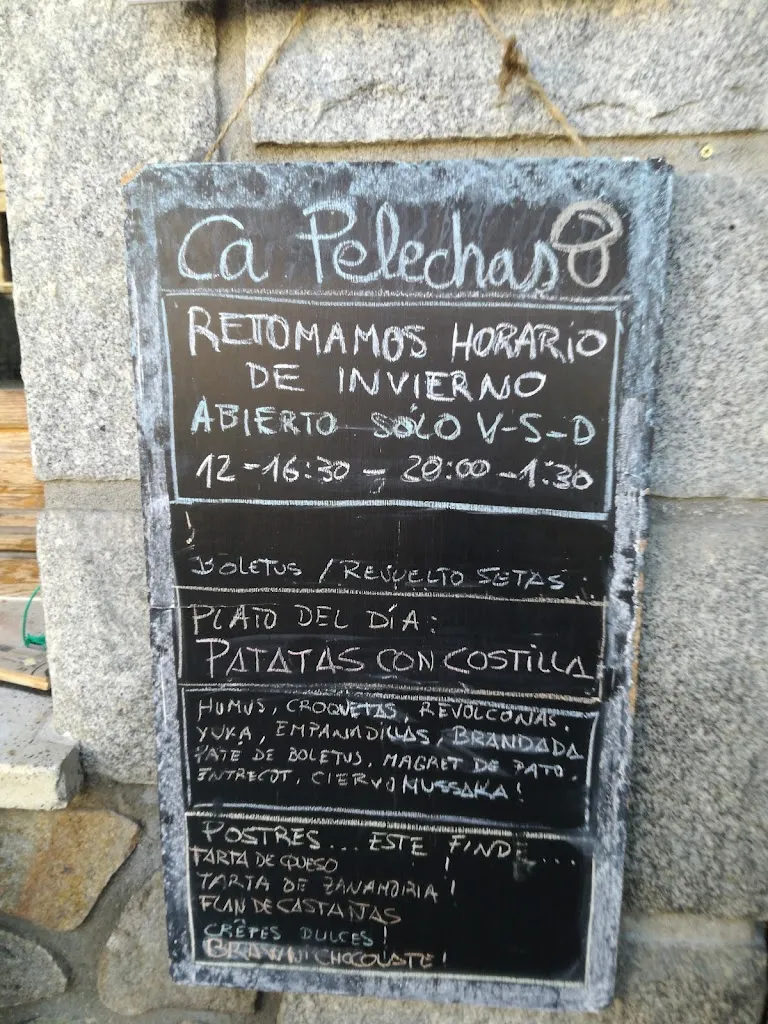 Ca Pelechas
RETOMAMOS HORARIO
DE INVIERNO
ABIERTO SÓLO V-S-D
12-16:30 - 20:00-1:30
¡
BOLETUS / REVUELTO SETAS
PLATO DEL DÍA:
PATATAS CON COSTILLA
HUMUS, CROQUETAS, REVOLCONAS,
YUKA, EMPANADILLAS, BRANDADA
PATE DE BOLETUS, MAGRET DE PATO,
ENTRECOT, CIERVO MUSSAKA!
POSTRES... ESTE FINDE...
TARTA DE QUESO !
TARTA DE ZANAHORIA !
FLAN DE CASTAÑAS
CRÊPES DULCES !
BRAWNI CHOCOLATE !